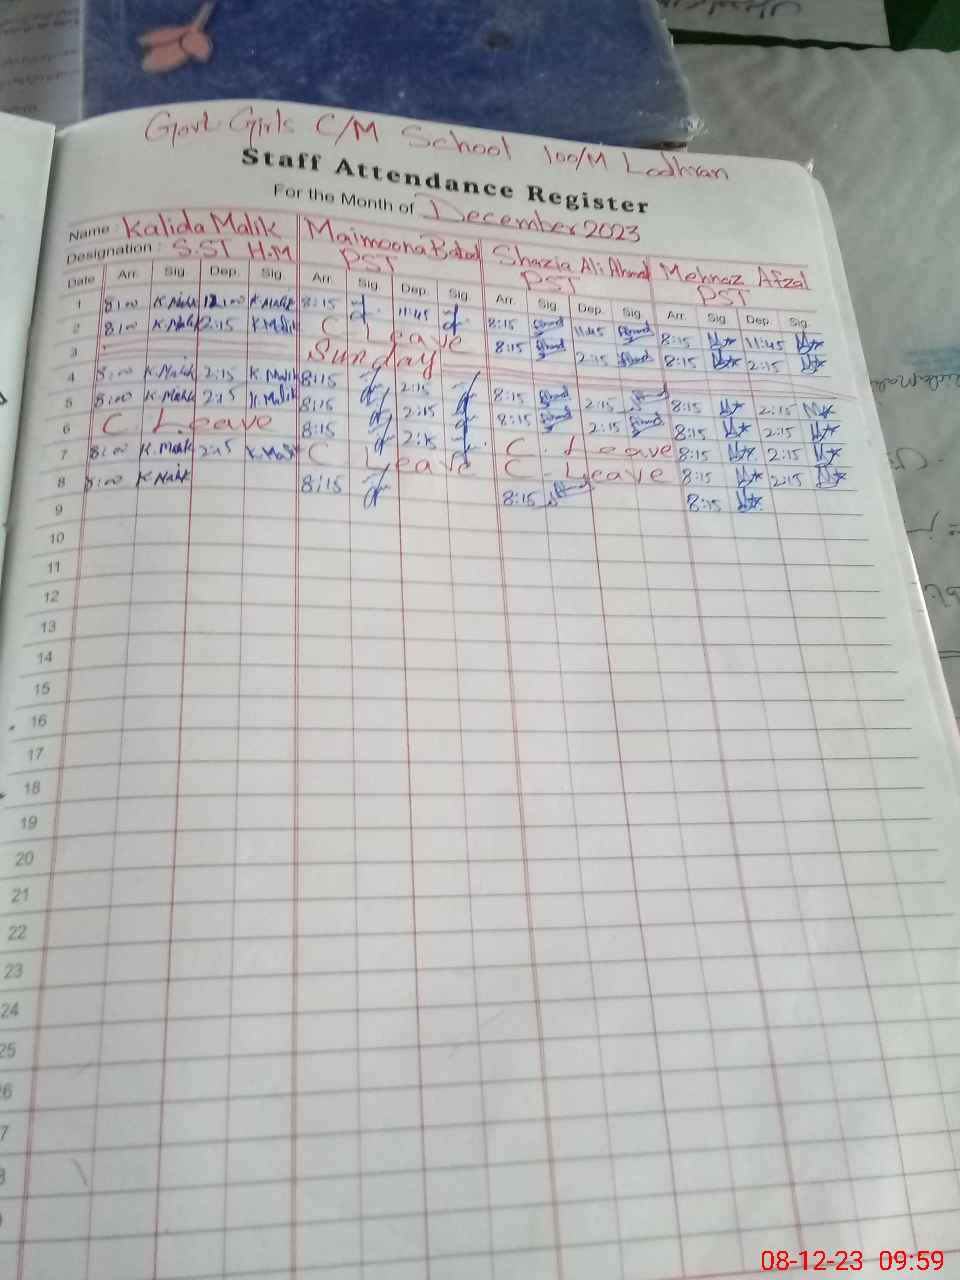 Govt. Girls C/M School 100/M Lodhran
Staff Attendance Register
For the Month of December 2023
Name : Kalida Malik Maimoona Shazia Ali Ahmad Mehnaz Afzal
Designation : S.ST H.M PST PST PST
Date Arr. Sig. Dep. Sig. Arr. Sig. Dep. Sig. Arr. Sig. Dep. Sig. Arr. Sig. Dep. Sig.
1 8:00 K.Malik 12:00 K.Malik 8:15 11:45 8:15 11:45 8:15 11:45
2 8:00 K.Malik 2:15 K.Malik C Leave 8:15 2:15 8:15 2:15
3 Sunday
4 8:00 K.Malik 2:15 K.Malik 8:15 2:15 8:15 2:15 8:15 2:15
5 8:00 K.Malik 2:15 K.Malik 8:15 2:15 8:15 2:15 8:15 2:15
6 C Leave 8:15 2:15 C. Leave 8:15 2:15
7 8:00 K.Malik 2:15 K.Malik C Leave C - Leave 8:15 2:15
8 8:00 K.Malik 8:15 8:15 8:15
9
10
11
12
13
14
15
16
17
18
19
20
21
22
23
24
25
6
7
08-12-23 09:59